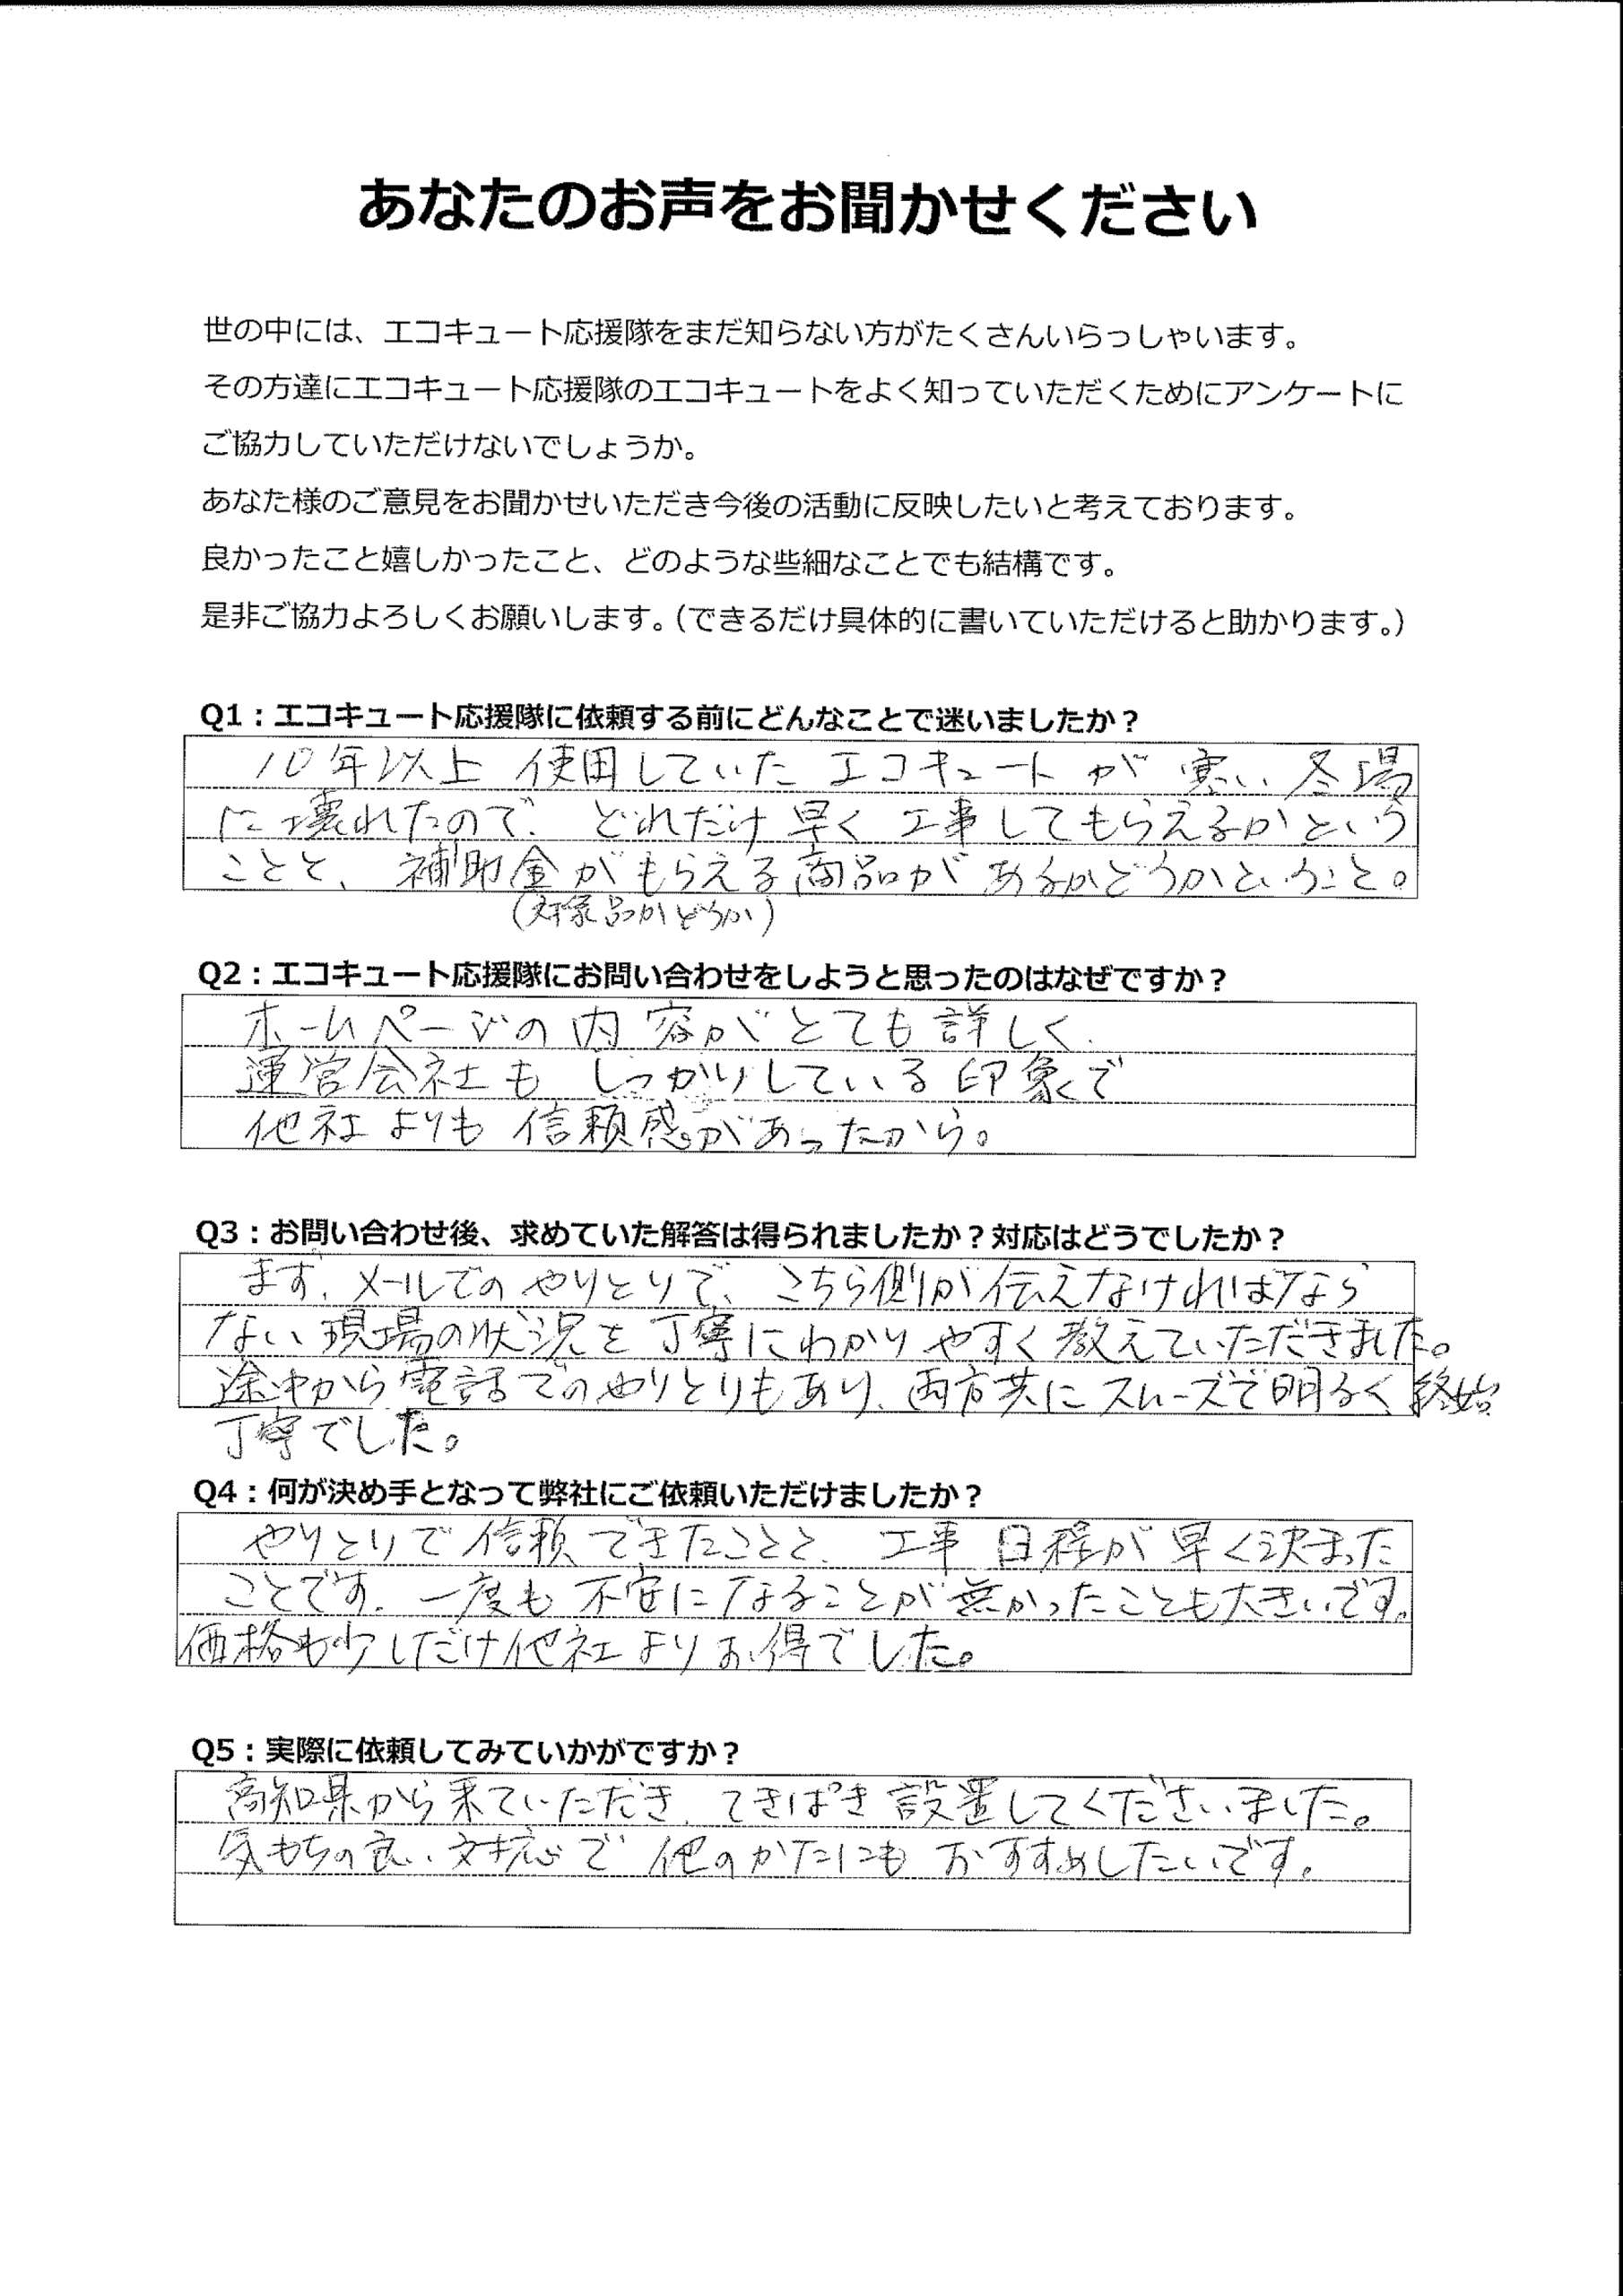 あなたのお声をお聞かせください
世の中には、エコキュート応援隊をまだ知らない方がたくさんいらっしゃいます。
その方達にエコキュート応援隊のエコキュートをよく知っていただくためにアンケートに
ご協力していただけないでしょうか。
あなた様のご意見をお聞かせいただき今後の活動に反映したいと考えております。
良かったこと嬉しかったこと、どのような些細なことでも結構です。
是非ご協力よろしくお願いします。（できるだけ具体的に書いていただけると助かります。）
Q1：エコキュート応援隊に依頼する前にどんなことで迷いましたか？
10年以上 使用していた エコキュート が 寒い 冬場
に壊れたので、どれだけ 早く 工事してもらえるかという
ことと、補助金がもらえる商品が あるかどうかということ。
（対象品かどうか）
Q2：エコキュート応援隊にお問い合わせをしようと思ったのはなぜですか？
ホームページの内容がとても詳しく、
運営会社も しっかりしている印象で
他社よりも 信頼感があったから。
Q3：お問い合わせ後、求めていた解答は得られましたか？対応はどうでしたか？
まず、メールでのやりとりで、こちら側が伝えなければなら
ない現場の状況を丁寧にわかりやすく教えていただきました。
途中から電話でのやりとりもあり、両方共にスムーズで明るく終始
丁寧でした。
Q4：何が決め手となって弊社にご依頼いただけましたか？
やりとりで信頼できたことと、工事日程が早く決まった
ことです。一度も不安になることが無かったことも大きいです。
価格も少しだけ他社よりお得でした。
Q5：実際に依頼してみていかがですか？
高知県から来ていただき、てきぱき設置してくださいました。
気もちの良い対応で 他のかたにも おすすめしたいです。